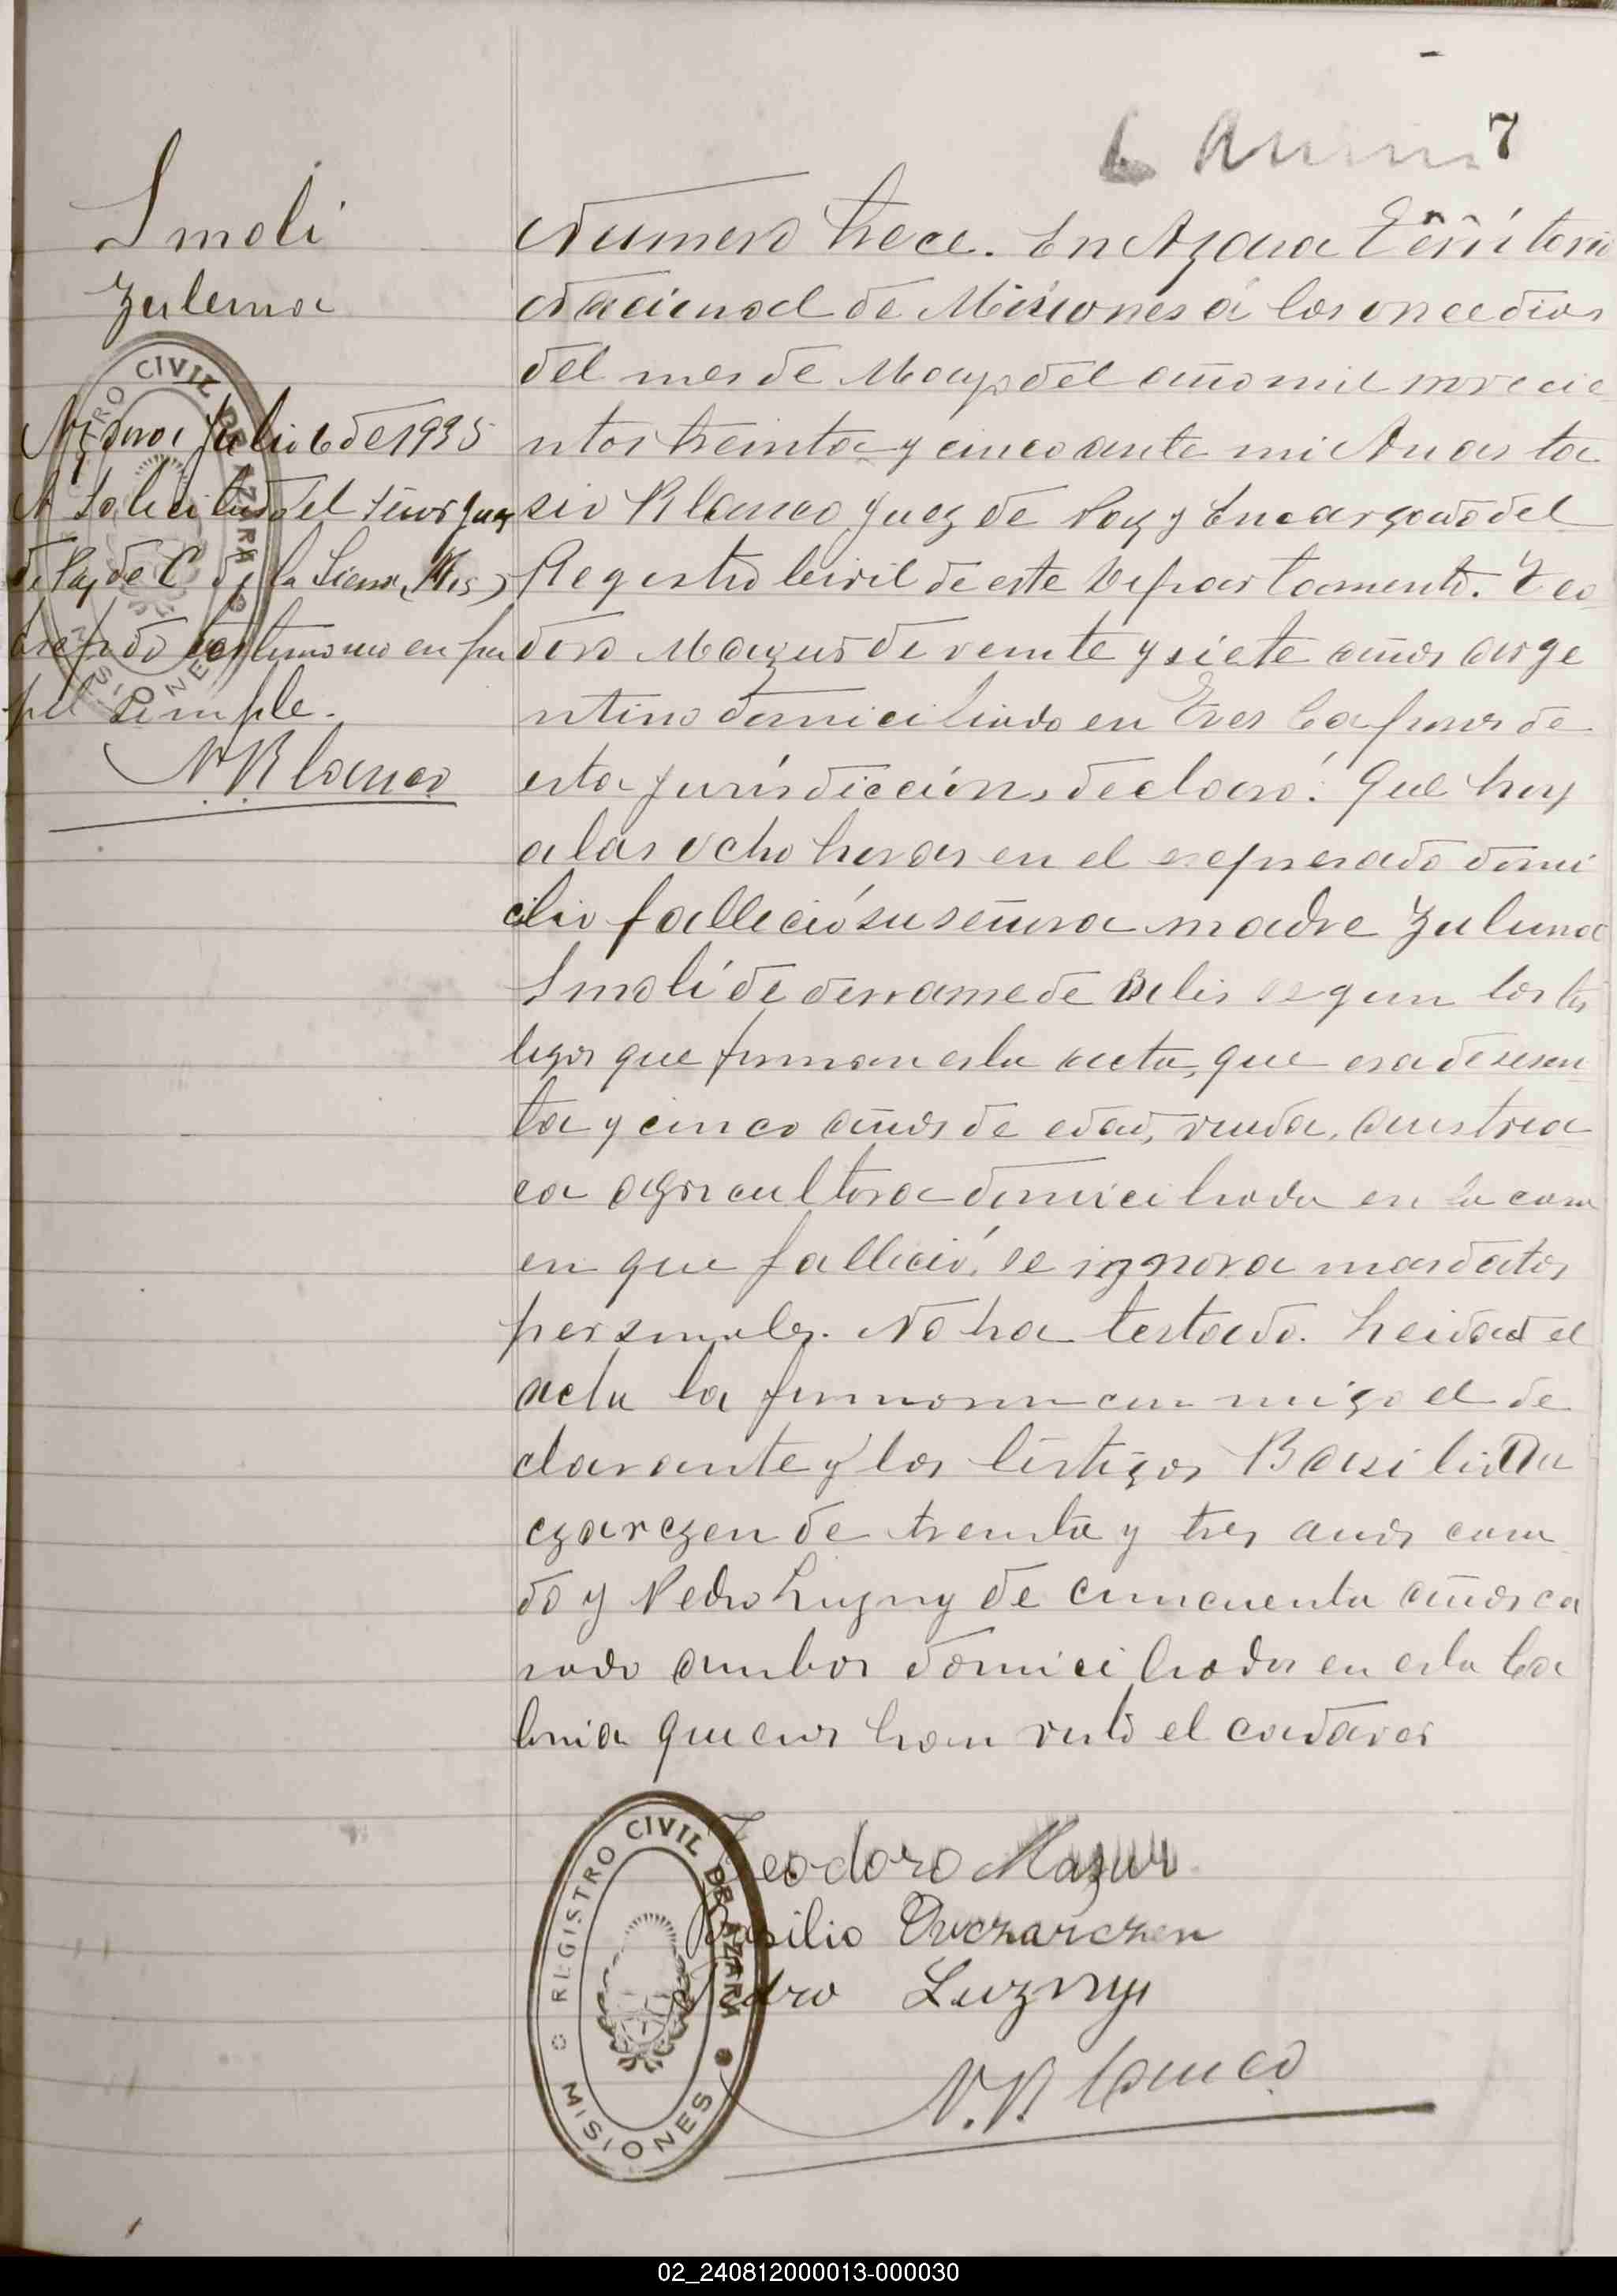 7
Smoli
Zulema
Azara Julio 6 de 1935
A Solicitud del señor Juez
de Paz de C de la Sierra, (Mis)
expedo testimonio en pa
pel simple.
A. Blanco
Numero trece. En Azara Territorio
Nacional de Misiones á los once dias
del mes de Mayo del año mil novecie
ntos treinta y cinco ante mi Anasta
sio Blanco Juez de Paz y Encargado del
Registro Civil de este Departamento. Teo
doro Mazur de veinte y siete años arge
ntino domiciliado en Tres Capones de
esta jurisdicción, declaró: Que hoy
a las ocho horas en el expresado domi
cilio falleció su señora madre Zulema
Smolí de derrame de Bilis segun los tes
tigos que firman esta acta, que era de sesen
ta y cinco años de edad, viuda, austria
ca agricultora domiciliada en la casa
en que falleció, se ignora mas datos
personales. No ha testado. Leida el
acta la firmaron conmigo el de
clarante y los testigos Basilio Ou
czarczen de treinta y tres años casa
do y Pedro Luzny de cincuenta años ca
sado ambos domiciliados en esta Co
lonia quienes han visto el cadaver
Teodoro Mazur
Basilio Owczarczen
Pedro Luzny
A. Blanco
REGISTRO CIVIL DE AZARA
MISIONES
02_240812000013-000030